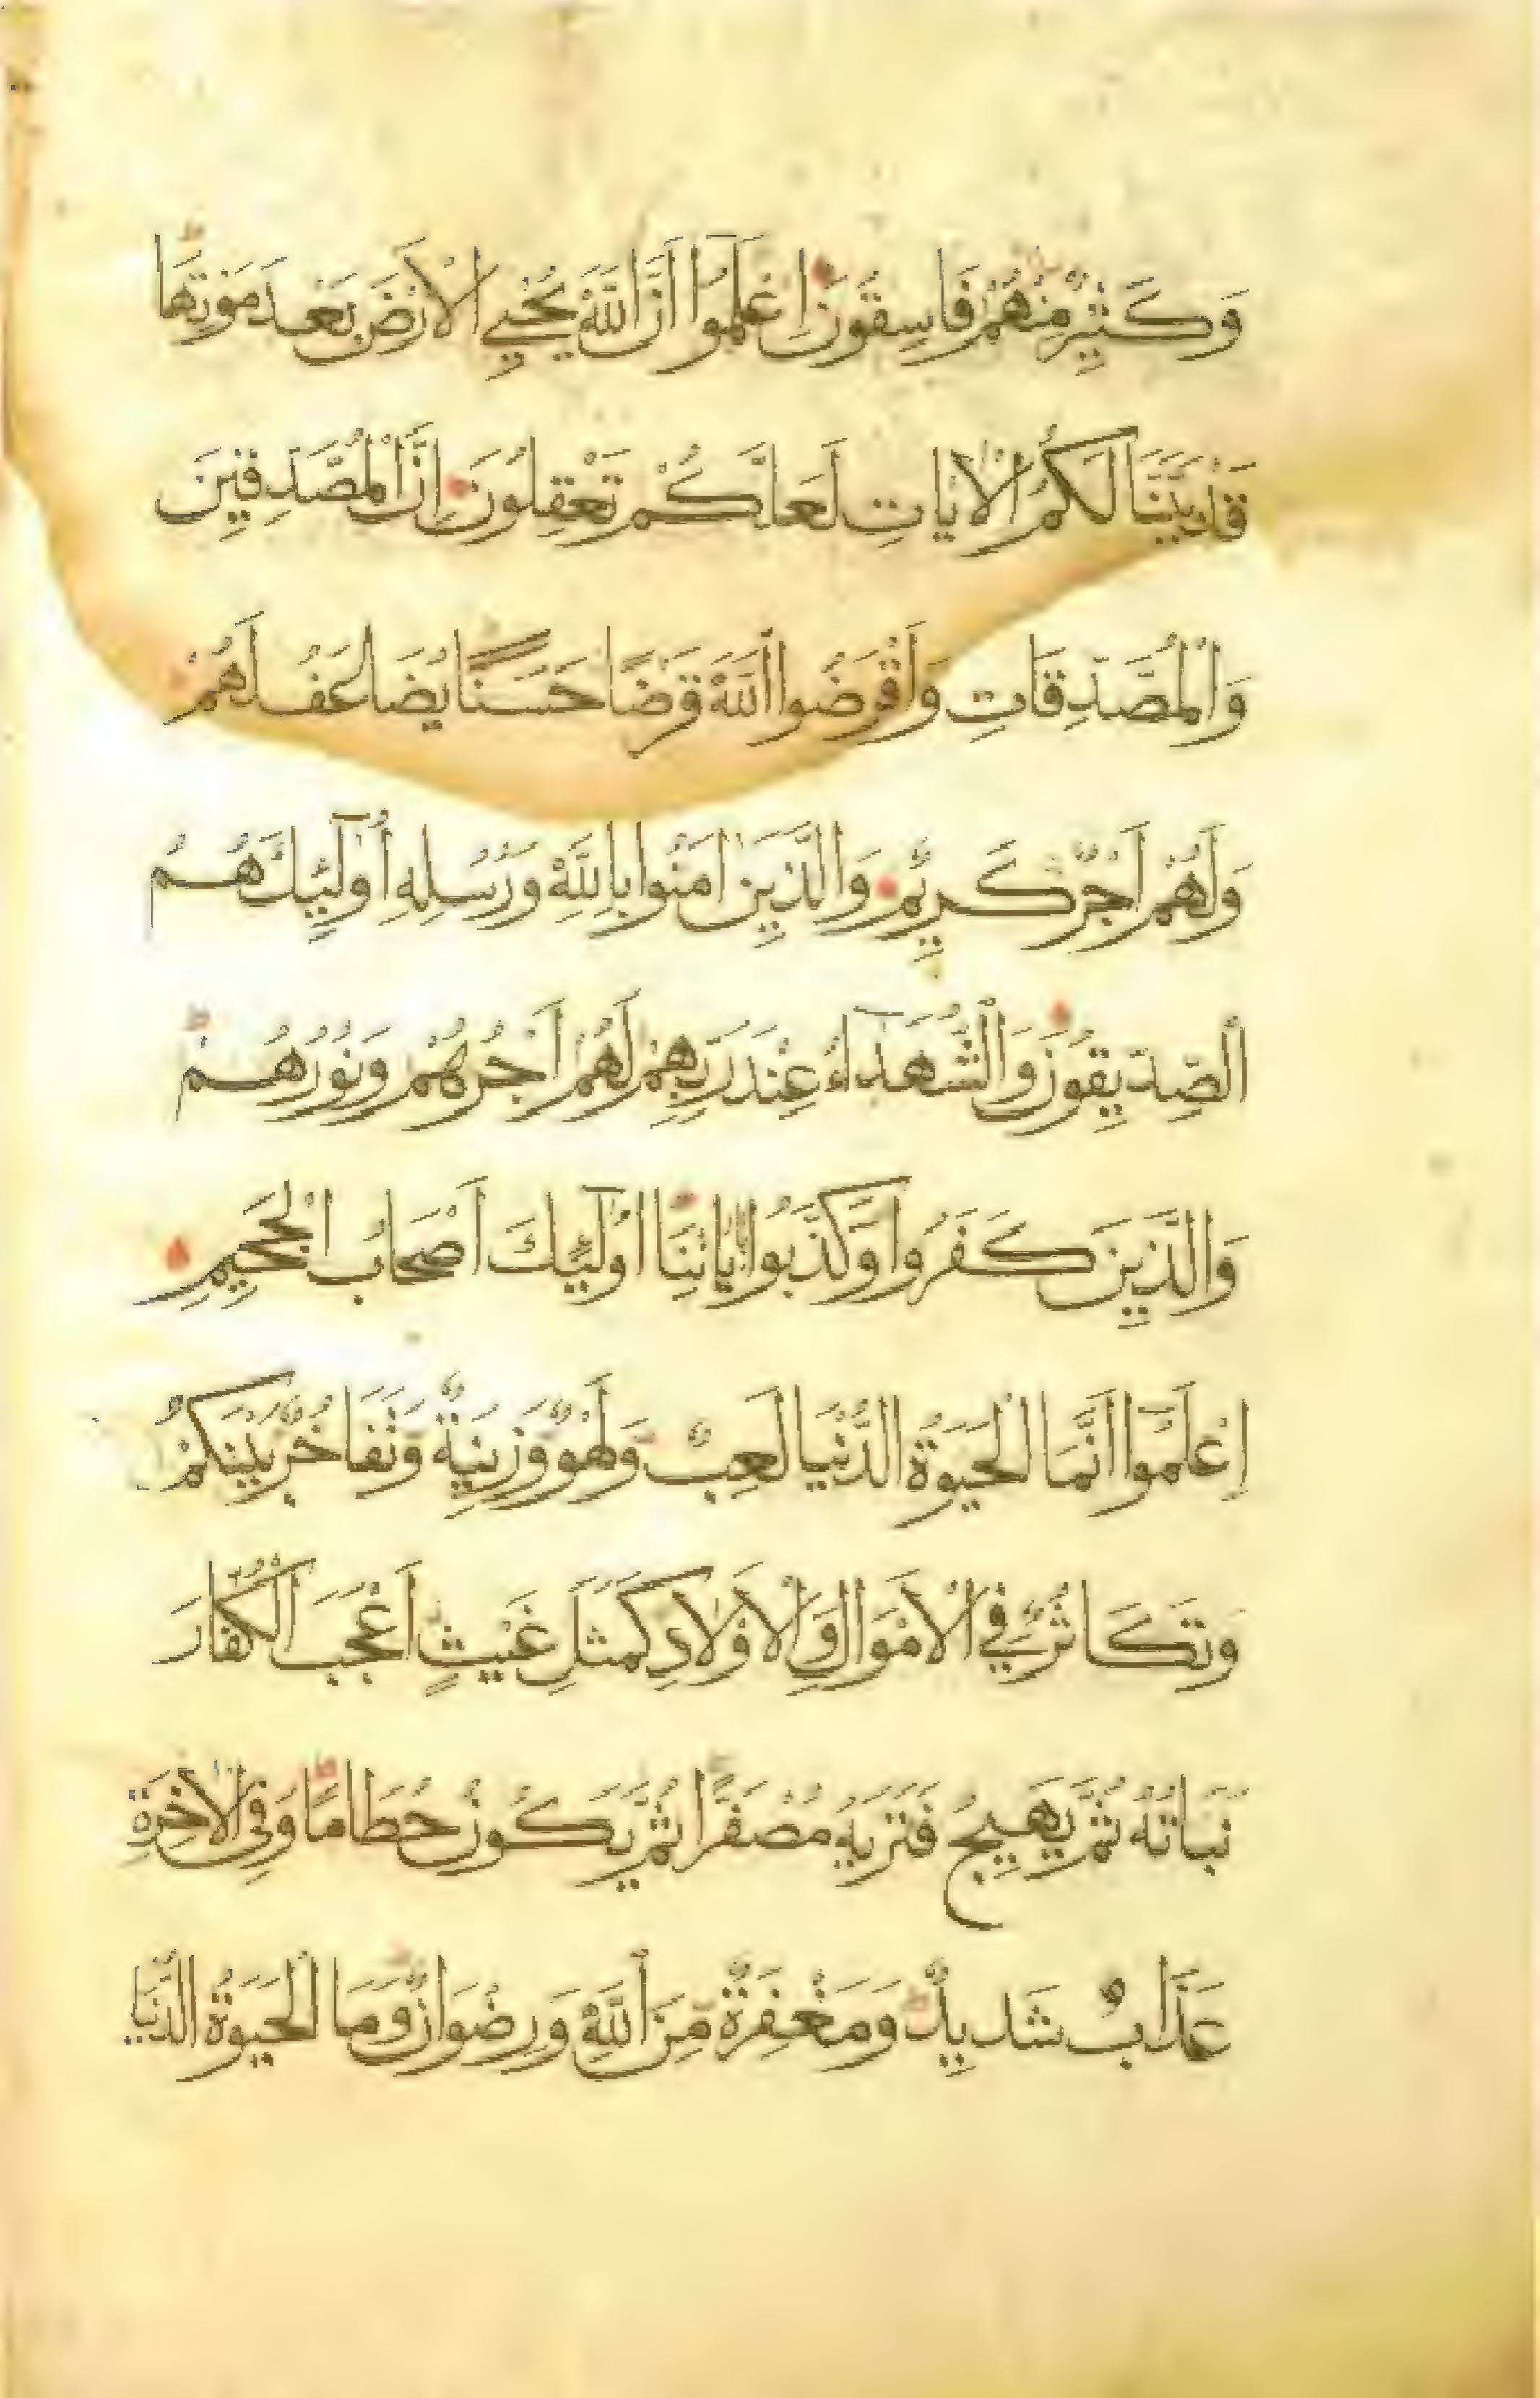 وَكَثِيرٌ مِنْهُمْ فَاسِقُونَ اِعْلَمُوا أَنَّ اللَّهَ يُحْيِي الْأَرْضَ بَعْدَ مَوْتِهَا
قَدْ بَيَّنَّا لَكُمُ الْاٰيَاتِ لَعَلَّكُمْ تَعْقِلُونَ اِنَّ الْمُصَّدِّقِينَ
وَالْمُصَّدِّقَاتِ وَأَقْرَضُوا اللَّهَ قَرْضًا حَسَنًا يُضَاعَفُ لَهُمْ
وَلَهُمْ أَجْرٌ كَرِيمٌ وَالَّذِينَ اٰمَنُوا بِاللَّهِ وَرُسُلِهِ أُولٰٓئِكَ هُمُ
الصِّدِّيقُونَ وَالشُّهَدَآءُ عِنْدَ رَبِّهِمْ لَهُمْ أَجْرُهُمْ وَنُورُهُمْ
وَالَّذِينَ كَفَرُوا وَكَذَّبُوا بِاٰيَاتِنَا أُولٰٓئِكَ أَصْحَابُ الْجَحِيمِ
اِعْلَمُوا أَنَّمَا الْحَيٰوةُ الدُّنْيَا لَعِبٌ وَلَهْوٌ وَزِينَةٌ وَتَفَاخُرٌ بَيْنَكُمْ
وَتَكَاثُرٌ فِي الْأَمْوَالِ وَالْأَوْلَادِ كَمَثَلِ غَيْثٍ أَعْجَبَ الْكُفَّارَ
نَبَاتُهُ ثُمَّ يَهِيجُ فَتَرٰيهُ مُصْفَرًّا ثُمَّ يَكُونُ حُطَامًا وَفِي الْاٰخِرَةِ
عَذَابٌ شَدِيدٌ وَمَغْفِرَةٌ مِّنَ اللَّهِ وَرِضْوَانٌ وَمَا الْحَيٰوةُ الدُّنْيَا